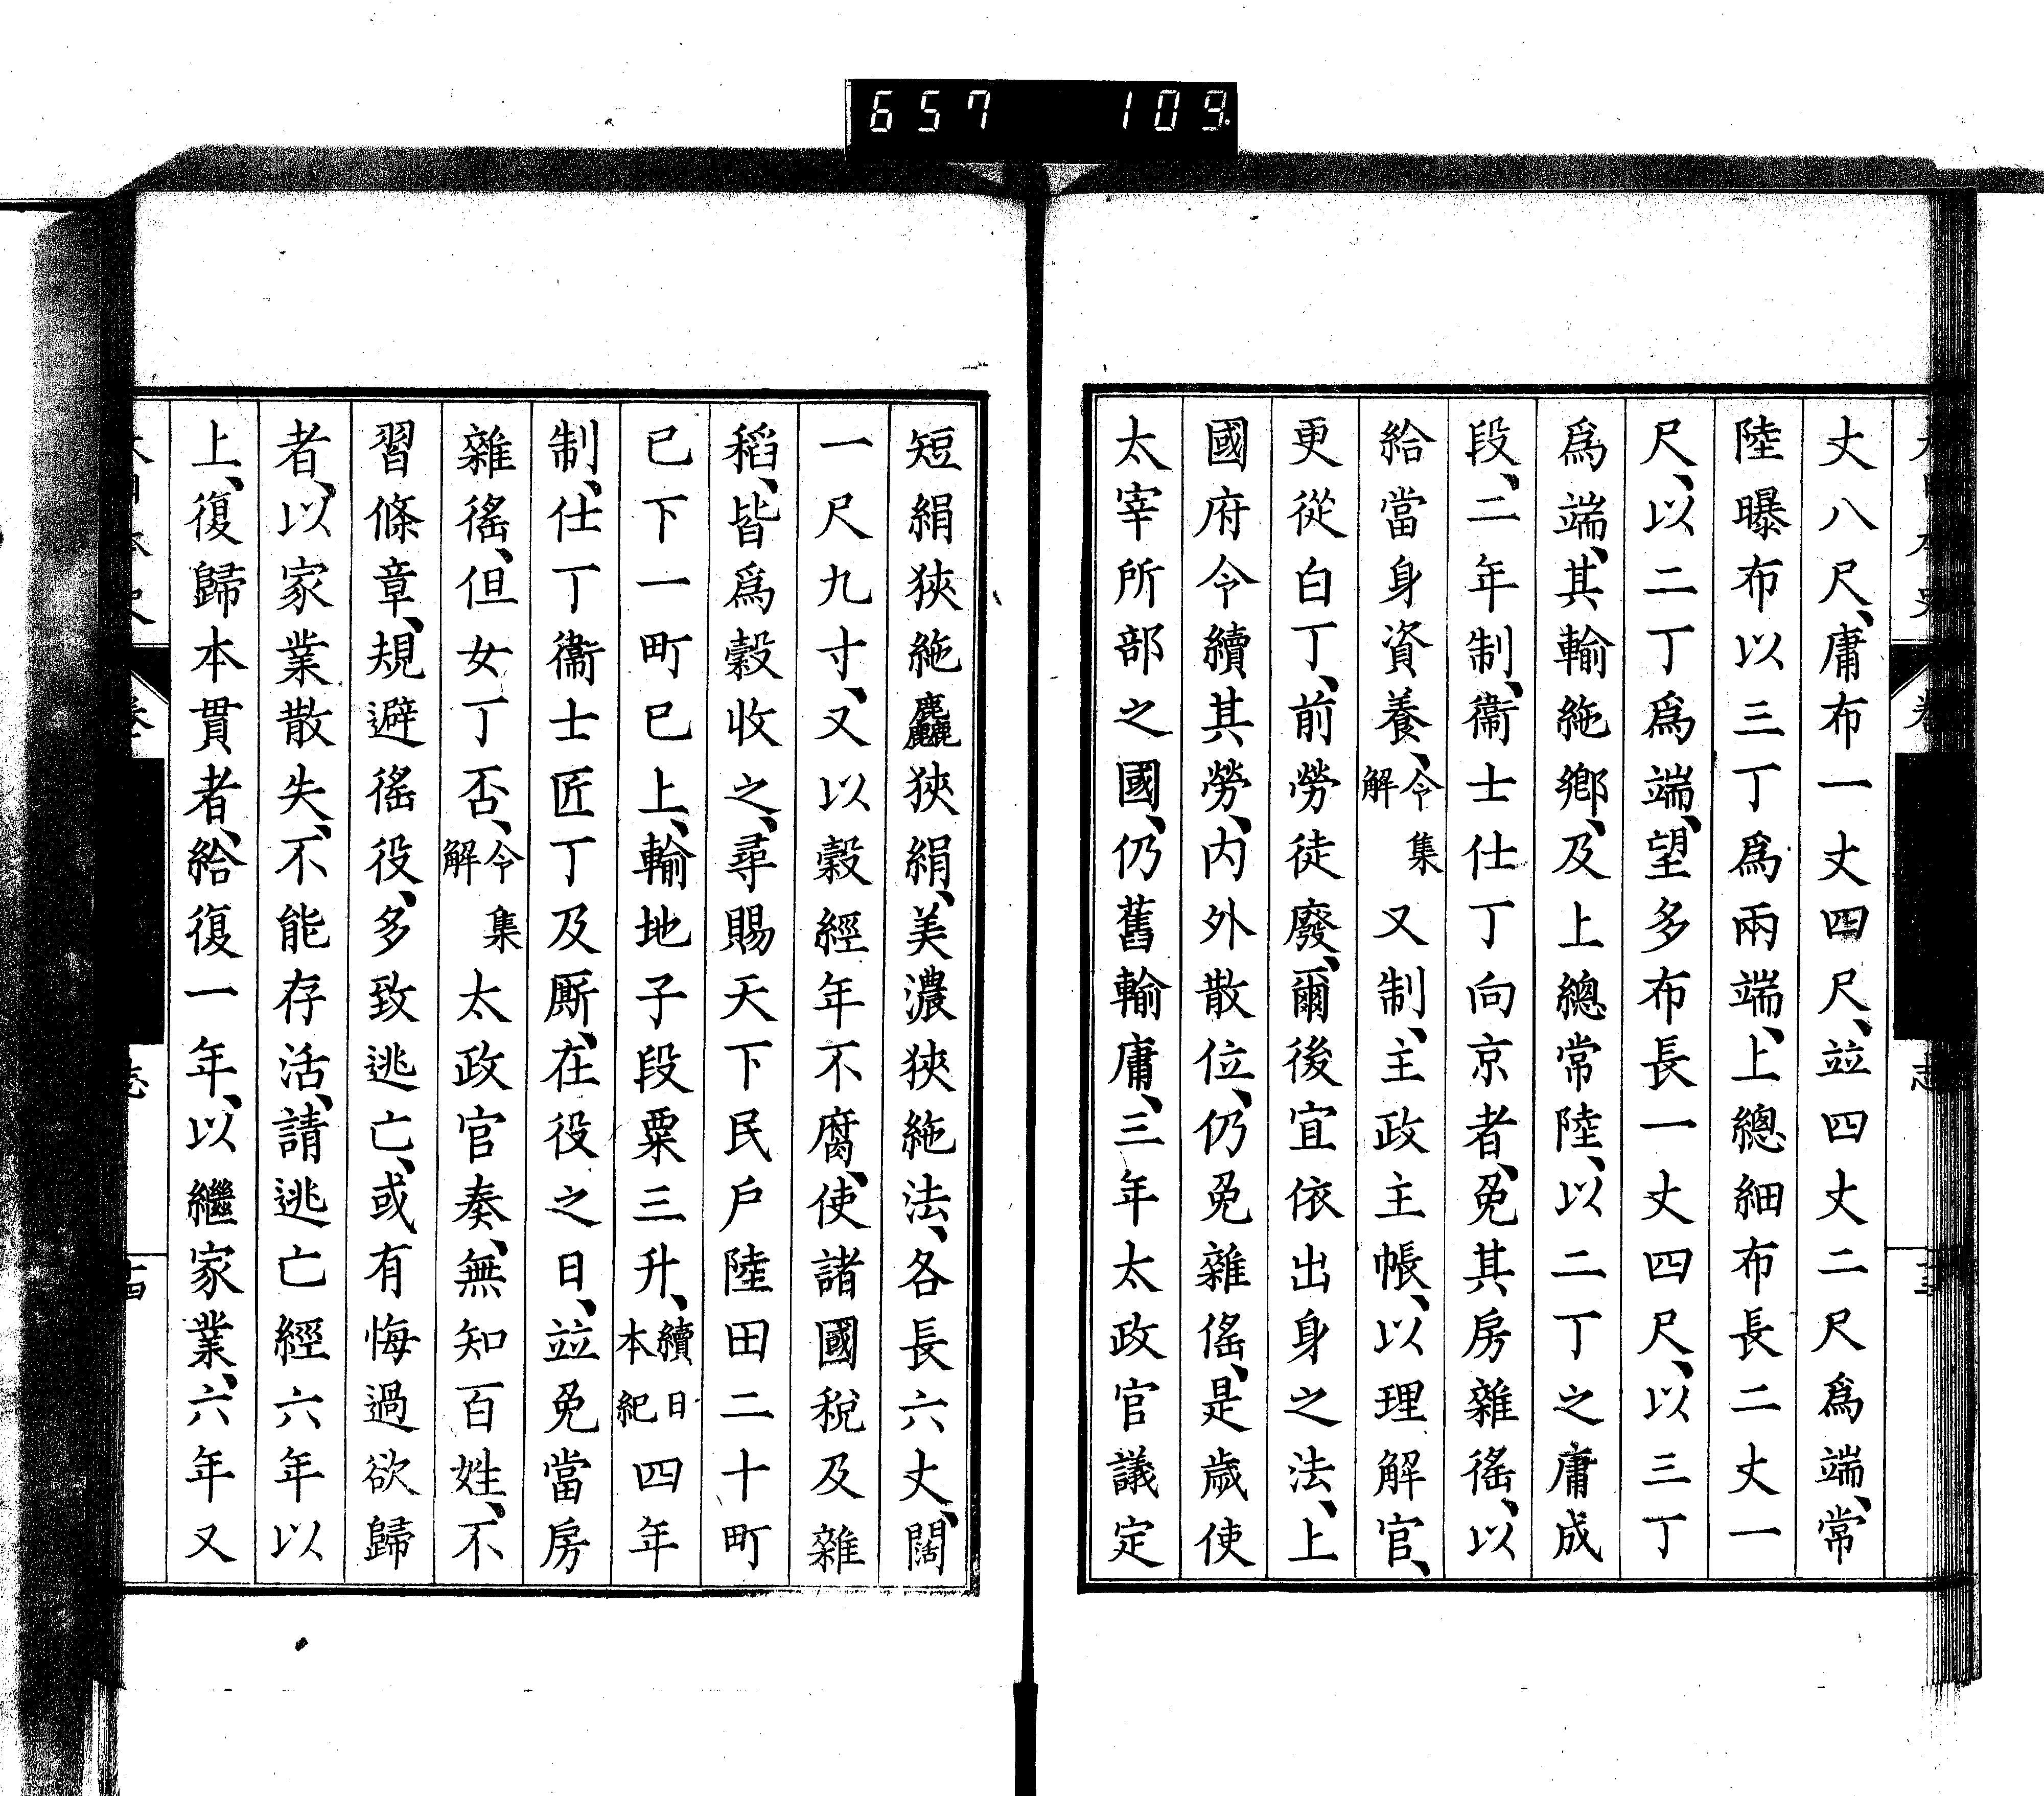 657 109
丈八尺、庸布一丈四尺、竝四丈二尺爲端、常
陸曝布以三丁爲兩端、上總細布長二丈一
尺、以二丁爲端、望多布長一丈四尺、以三丁
爲端、其輸絁鄕、及上總常陸、以二丁之庸成
段、二年制、衞士仕丁向京者、免其房雜徭、以
給當身資養、令集解又制、主政主帳、以理解官、
更從白丁、前勞徒廢、爾後宜依出身之法、上
國府令續其勞、内外散位、仍免雜徭、是歲使
太宰所部之國、仍舊輸庸、三年太政官議定
短絹狹絁麤狹絹、美濃狹絁法、各長六丈、闊
一尺九寸、又以穀經年不腐、使諸國稅及雜
稻、皆爲穀收之、尋賜天下民戶陸田二十町
已下一町已上、輸地子段粟三升、續日本紀四年
制、仕丁衞士匠丁及厮、在役之日、竝免當房
雜徭、但女丁否、令集解太政官奏、無知百姓、不
習條章、規避徭役、多致逃亡、或有悔過欲歸
者、以家業散失、不能存活、請逃亡經六年以
上、復歸本貫者、給復一年、以繼家業、六年又